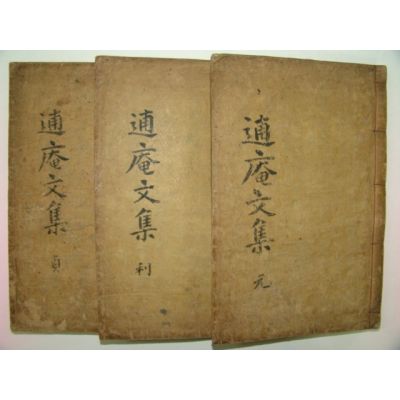 逋庵文集 元
逋庵文集 利
逋庵文集 貞